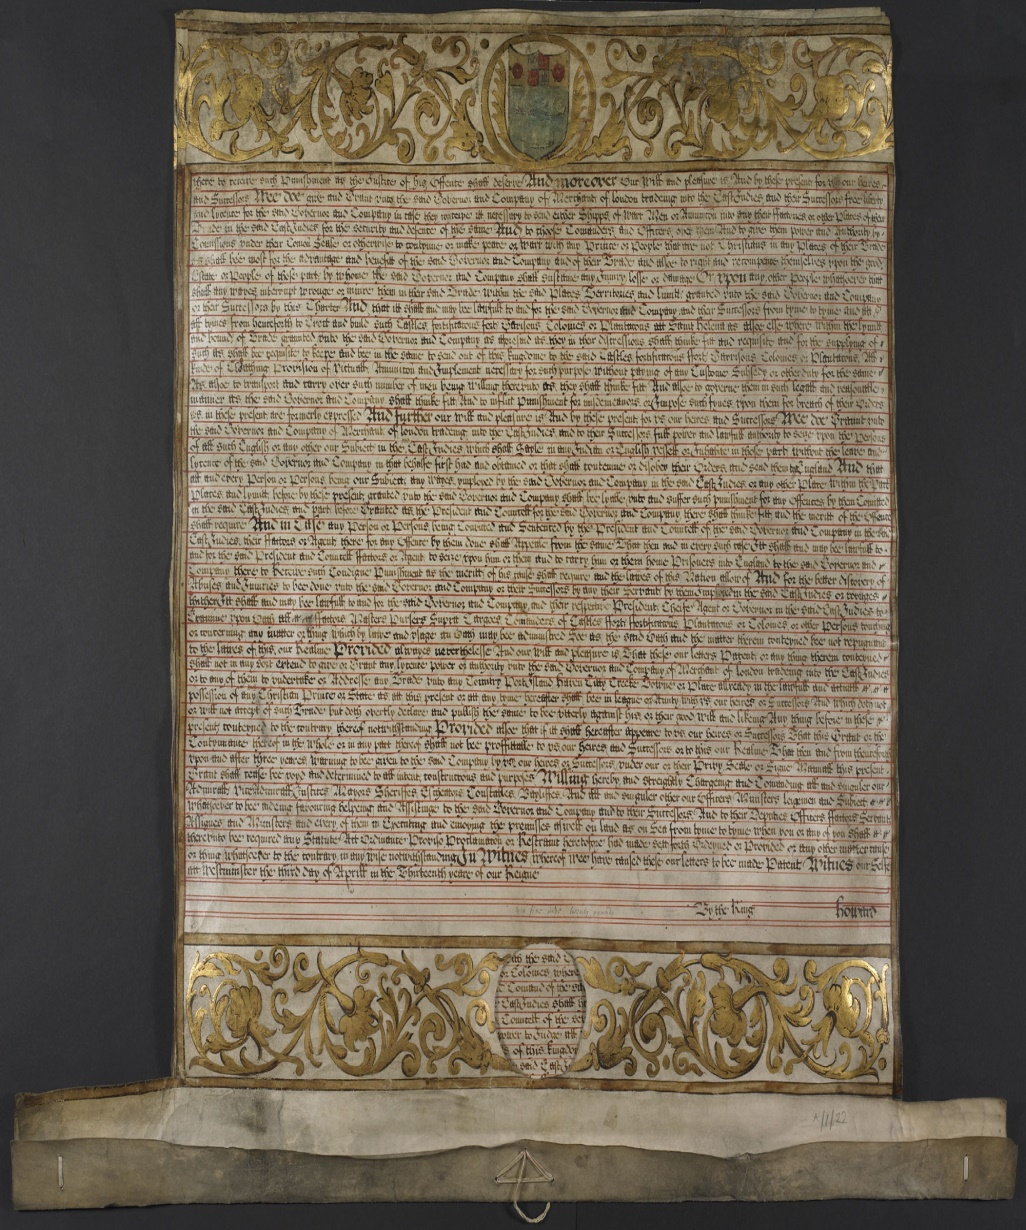 there to receive such Punishment as the Nature of his Offence shall deserve And moreover Our Will and pleasure is And by these present for us our heires
and Successors Wee doe give and Grant unto the said Governor and Company of Merchant of London tradeing into the East Indies and their Successors free liberty
and lycence for the said Governor and Company in case they conceive it necessary to send either Shipps of Warr Men or Amunition into any their Factories or other Places of their
Trade in the said East Indies for the security and defence of the same And to choose Comanders and Officers over them And to give them power and Authority by
Comissions under their Comon Seale or otherwise to continue or make peace or Warr with any Prince or People that are not Christians in any Places of their Trade
as shall bee most for the advantage and benefit of the said Governor and Company and of their Trade and alsoe to right and recompence themselves upon the good
Estate or People of those part by whome the said Governor and Company shall sustaine any Iniury losse or damage Or upon any other People whatsoever that
shall any wayes interrupt wronge or iniure them in their said Trade within the said Places Territories and lymitt granted unto the said Governor and Company
or their Successors by this Charter And that itt shall and may bee lawfull to and for the said Governor and Company and their Successors from tyme to tyme And att
all tymes from henceforth to Erect and build such Castles fortificatons fort Garrisons Colonies or Plantatons att Saint Helena as alsoe else where within the lymitt
and bound of Trade granted unto the said Governor and Company as aforesaid as they in their discretions shall thinke fitt and requisite and for the supplying of
such as shall bee requisite to keepe and bee in the same to send out of this kingdome to the said Castles fortificatons fort Garrisons Colonies or Plantatons All
kinds of Cloathing Provision of Victuall Amuniton and Implement necessary for such purpose without paying of any Custome Subsedy or other duty for the same
As alsoe to transport and carry over such number of men being willing thereunto as they shall thinke fitt And alsoe to governe them in such legall and reasonable
manner as the said Governor and Company shall thinke fitt And to inflict Punishment for misdemeanors or Impose such fynes upon them for breach of their Orders
as in these present are formerly expressed And further our will and pleasure is And by these present for us our heires and Successors Wee doe Graunt unto
the said Governor and Company of Merchant of London tradeing into the East Indies and to their Successors full power and lawfull authority to seize upon the Persons
of all such English or any other our Subiect in the East Indies which shall Sayle in any Indian or English Vessell or Inhabite in those part without the leave and
lycence of the said Governor and Company in that behalfe first had and obtained or that shall contemne or disobey their Orders and send them to England And that
all and every Person or Persons being our Subiect any wayes ymployed by the said Governor and Company in the said East Indies or any other Place within the Part
Places and lymitt before by these present granted unto the said Governor and Company shall bee lyable unto and suffer such punishment for any Offences by them Comitted
in the said East Indies and part before Granted as the President and Councell for the said Governor and Company there shall thinke fitt and the meritt of the Offence
shall require And in Case any Person or Persons being Convicted and Sentenced by the President and Councell of the said Governor and Company in the said
East Indies their Factors or Agent there for any Offence by them done shall Appeale from the same That then and in every such case Itt shall and may bee lawfull to
and for the said President and Councell Factors or Agent to seize upon him or them and to carry him or them home Prisoners into England to the said Governor and
Company there to Receive such Condigne Punishment as the meritt of his cause shall require and the lawes of this Nation allow of And for the better discovery of
Abuses and Iniuries to bee done unto the said Governor and Company or their Successors by any their Servant by them imployed in the said East Indies or voyages
thither Itt shall and may bee lawfull to and for the said Governor and Company and their respective President Cheife Agent or Governor in the said East Indies to
Examine upon Oath all Factors Masters Pursers Supra Cargoes Comanders of Castles Forth Fortificatons Plantatons or Colonies or other Persons touching
or concerning any matter or thing which by lawe and usage an Oath may bee administred Soe as the said Oath and the matter therein conteyned bee not repugnant
to the lawes of this our Realme Provided alwayes neverthelesse And our will and pleasure is That these our letters Patent or any thing therein conteyned
shall not in any sort extend to give or Grant any lycence power or authority unto the said Governor and Company of Merchant of London tradeing into the East Indies
or to any of them to undertake or Addresse any Trade unto any Country Port Island Haven City Creeke Towne or Place allready in the lawfull and actuall
possession of any Christian Prince or State as att this present or att any tyme hereafter shall bee in league or Amity with us our heires or Successors And which doth not
or will not accept of such Trade but doth overtly declare and publish the same to bee utterly against his or their good will and likeing Any thing before in these
present conteyned to the contrary thereof notwithstanding Provided alsoe that if itt shall hereafter appeare to us our heires or Successors That this Grant or the
Contynuance thereof in the Whole or in any part thereof shall not bee proffitable to us our heires and Successors or to this our Realme That then and from thenceforth
upon and after three yeares Warning to bee given to the said Company by us our heires or Successors under our or their Privy Seale or Signe Manuall this present
Grant shall cease bee voyd and determined to all intent constructons and purposes Willing hereby and streightly Chargeing and Comanding all and singuler our
Admirall ViceAdmirall Iustices Mayors Sheriffes Escheators Constables Bayliffes And all and singuler other our Officers Ministers leigemen and Subiect
whatsoever to bee aideing favouring helpeing and Assisting to the said Governor and Company and to their Successors And to their Deputies Officers Factors Servant
Assignes and Ministers and every of them in Executing and enioying the premisses aswell on land as on Sea from tyme to tyme when you or any of you shall
thereunto bee required any Statute Act Ordinance Proviso Proclamaton or Restraint heretofore had made sett forth Ordeyned or Provided or any other matter cause
or thing whatsoever to the contrary in any wise notwithstanding In Witnes whereof wee have caused these our letters to bee made Patent Witnes our Selfe
att Westminster the third day of Aprill in the Thirteenth yeare of our Reigne
By the King Howard
with the said
or Colonies where
Comand of the
East Indies shall
Councell of the
power to Iudge all
of this kingdom
said East
A/1/22